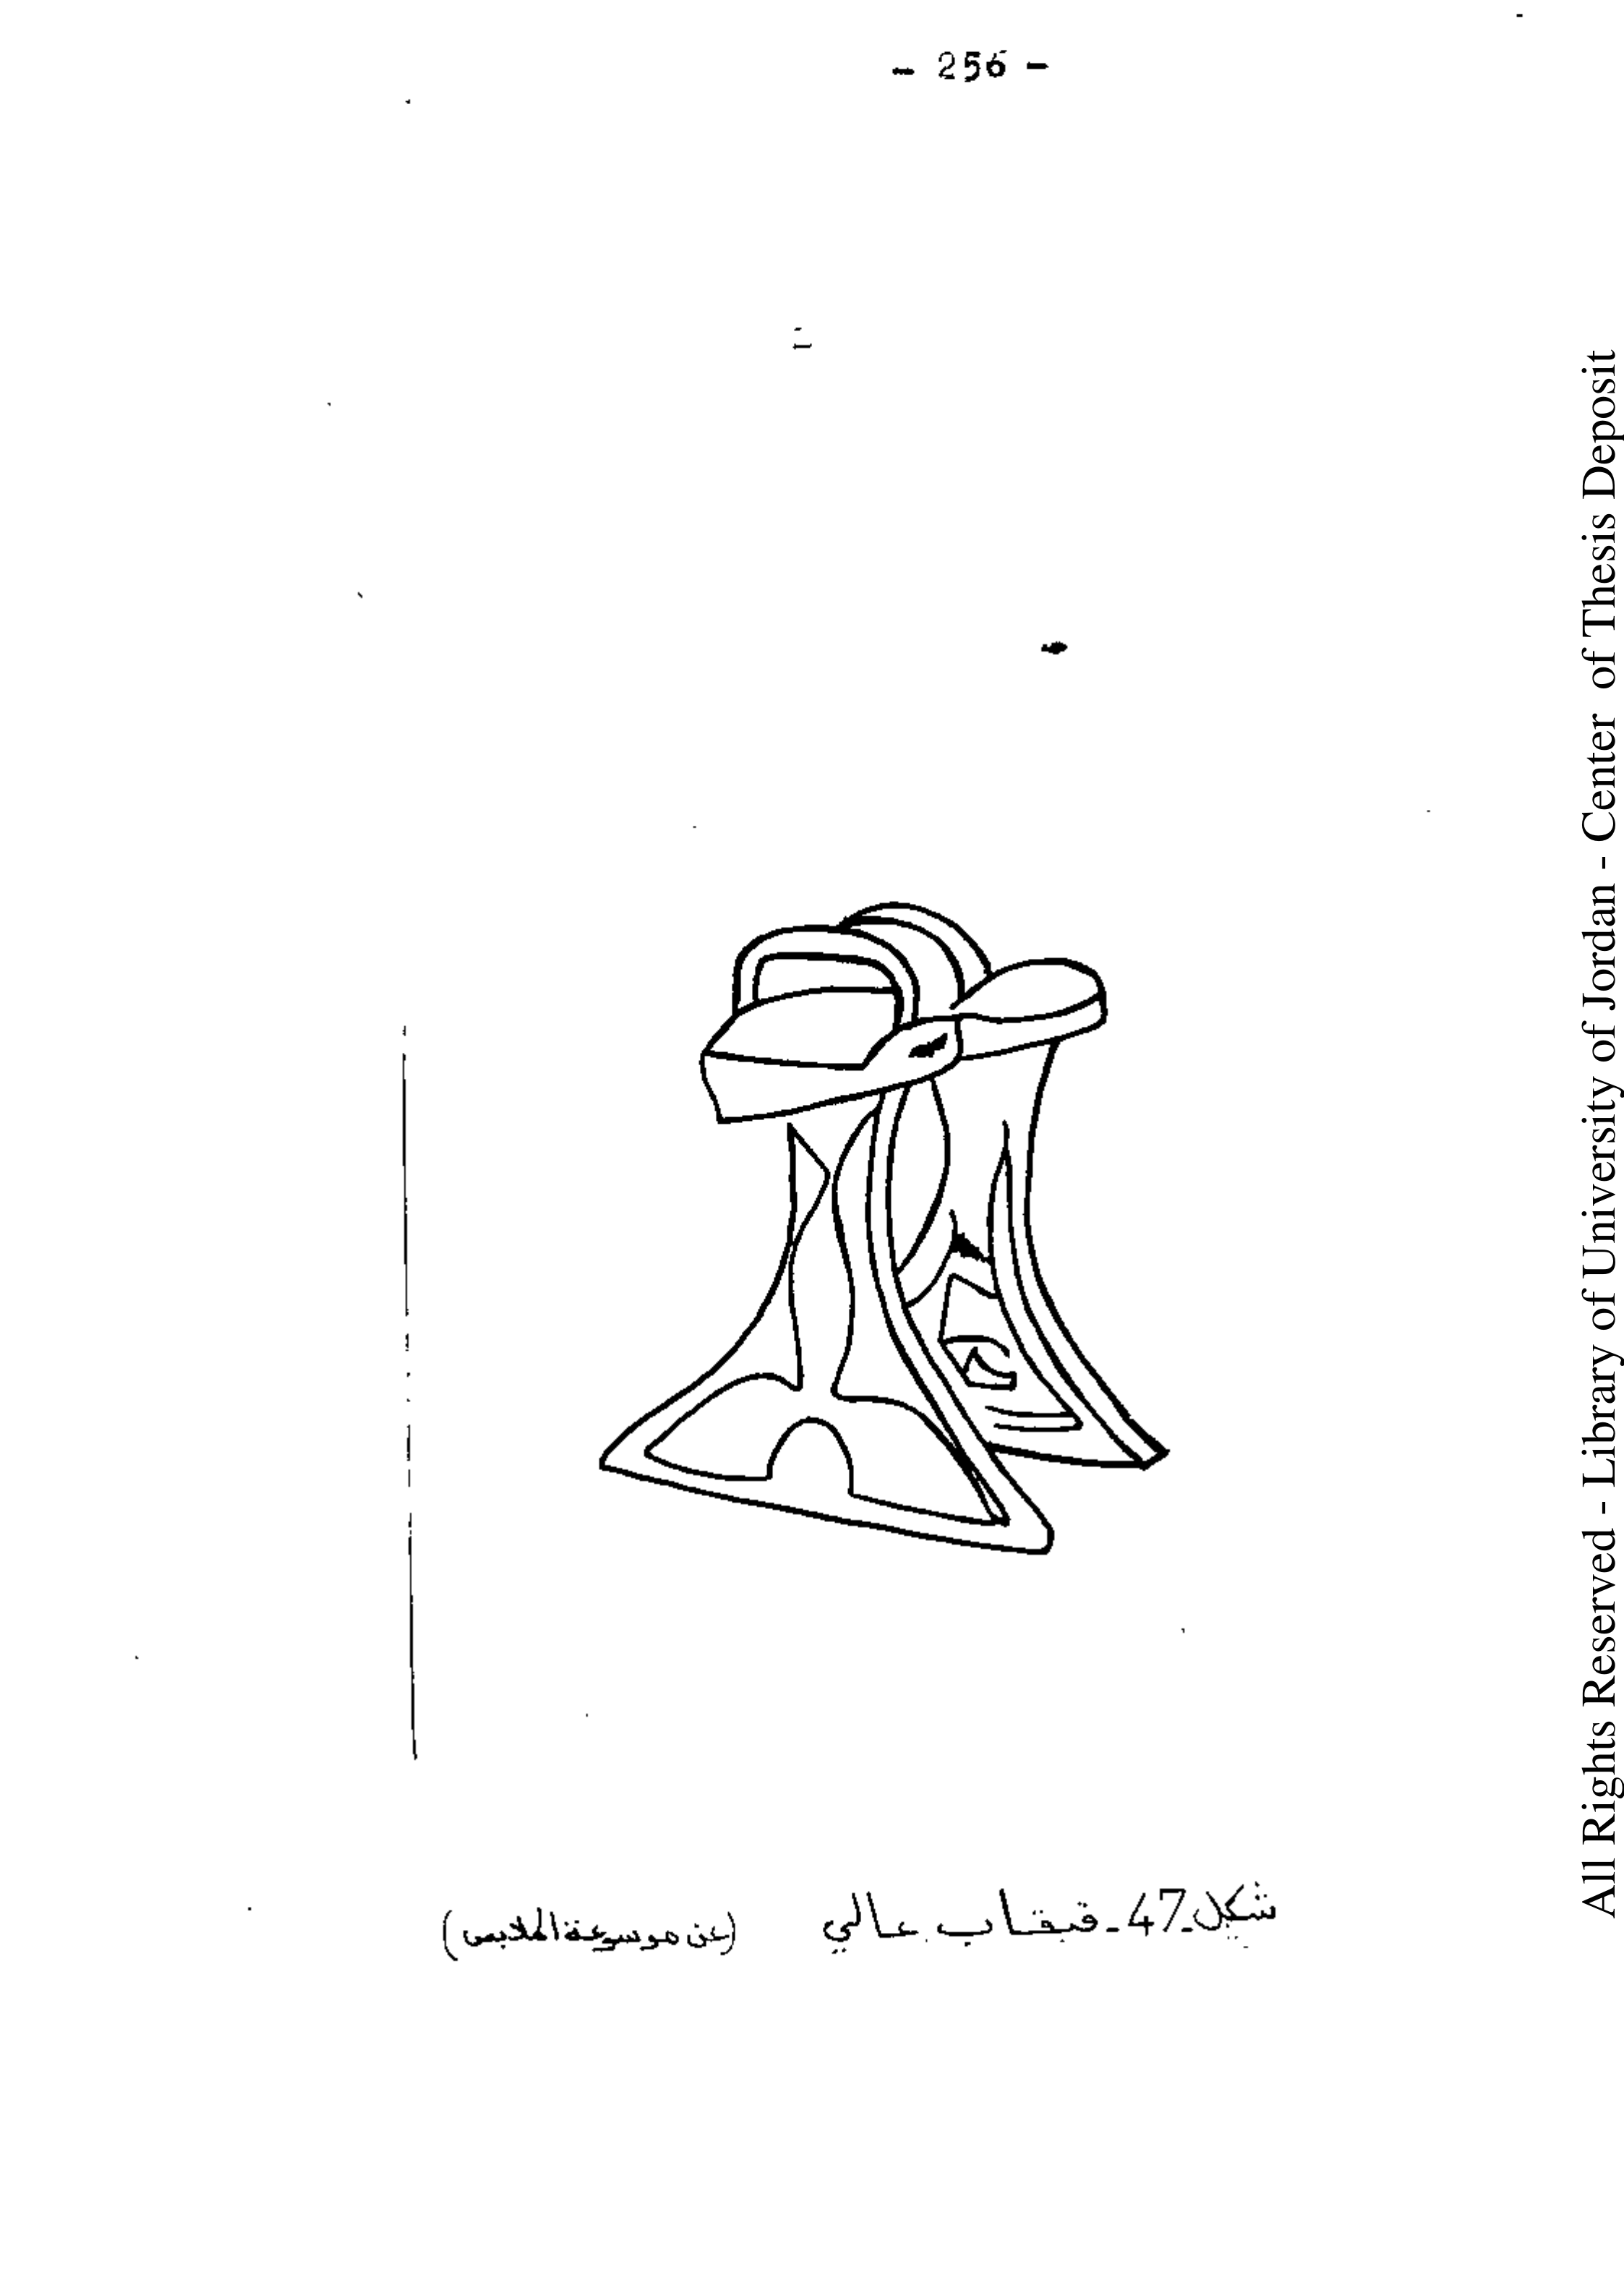 - 256 -
شكل-47-قبقاب عالي (عن موسوعة الملابس)
All Rights Reserved - Library of University of Jordan - Center of Thesis Deposit